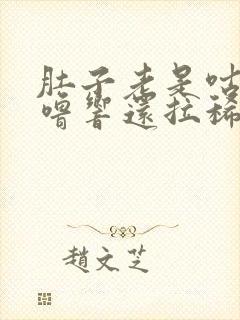 肚子老是咕
嚕響還拉稀
趙文芝